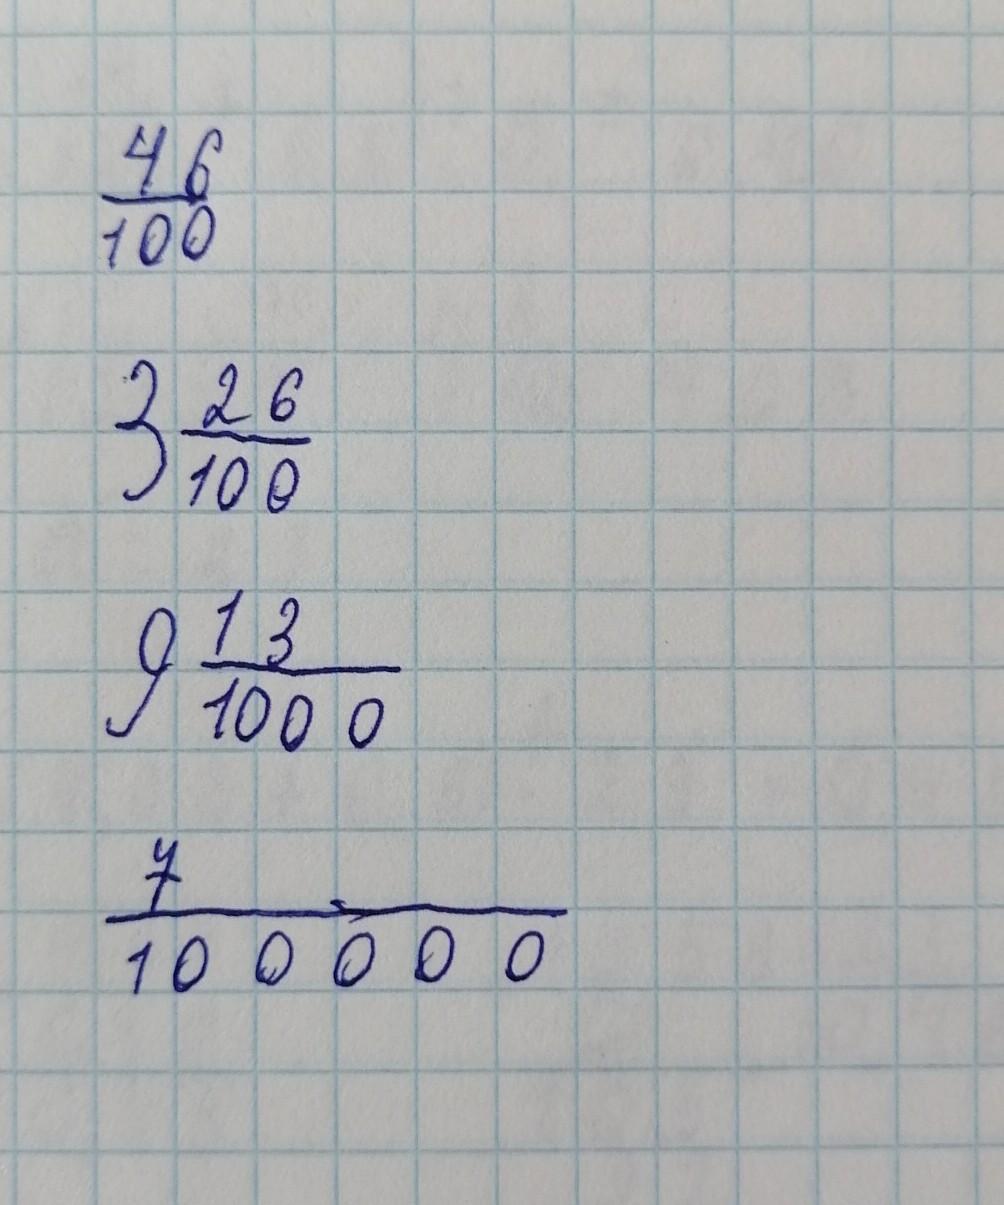 46/100
3 26/100
9 13/1000
7/100000